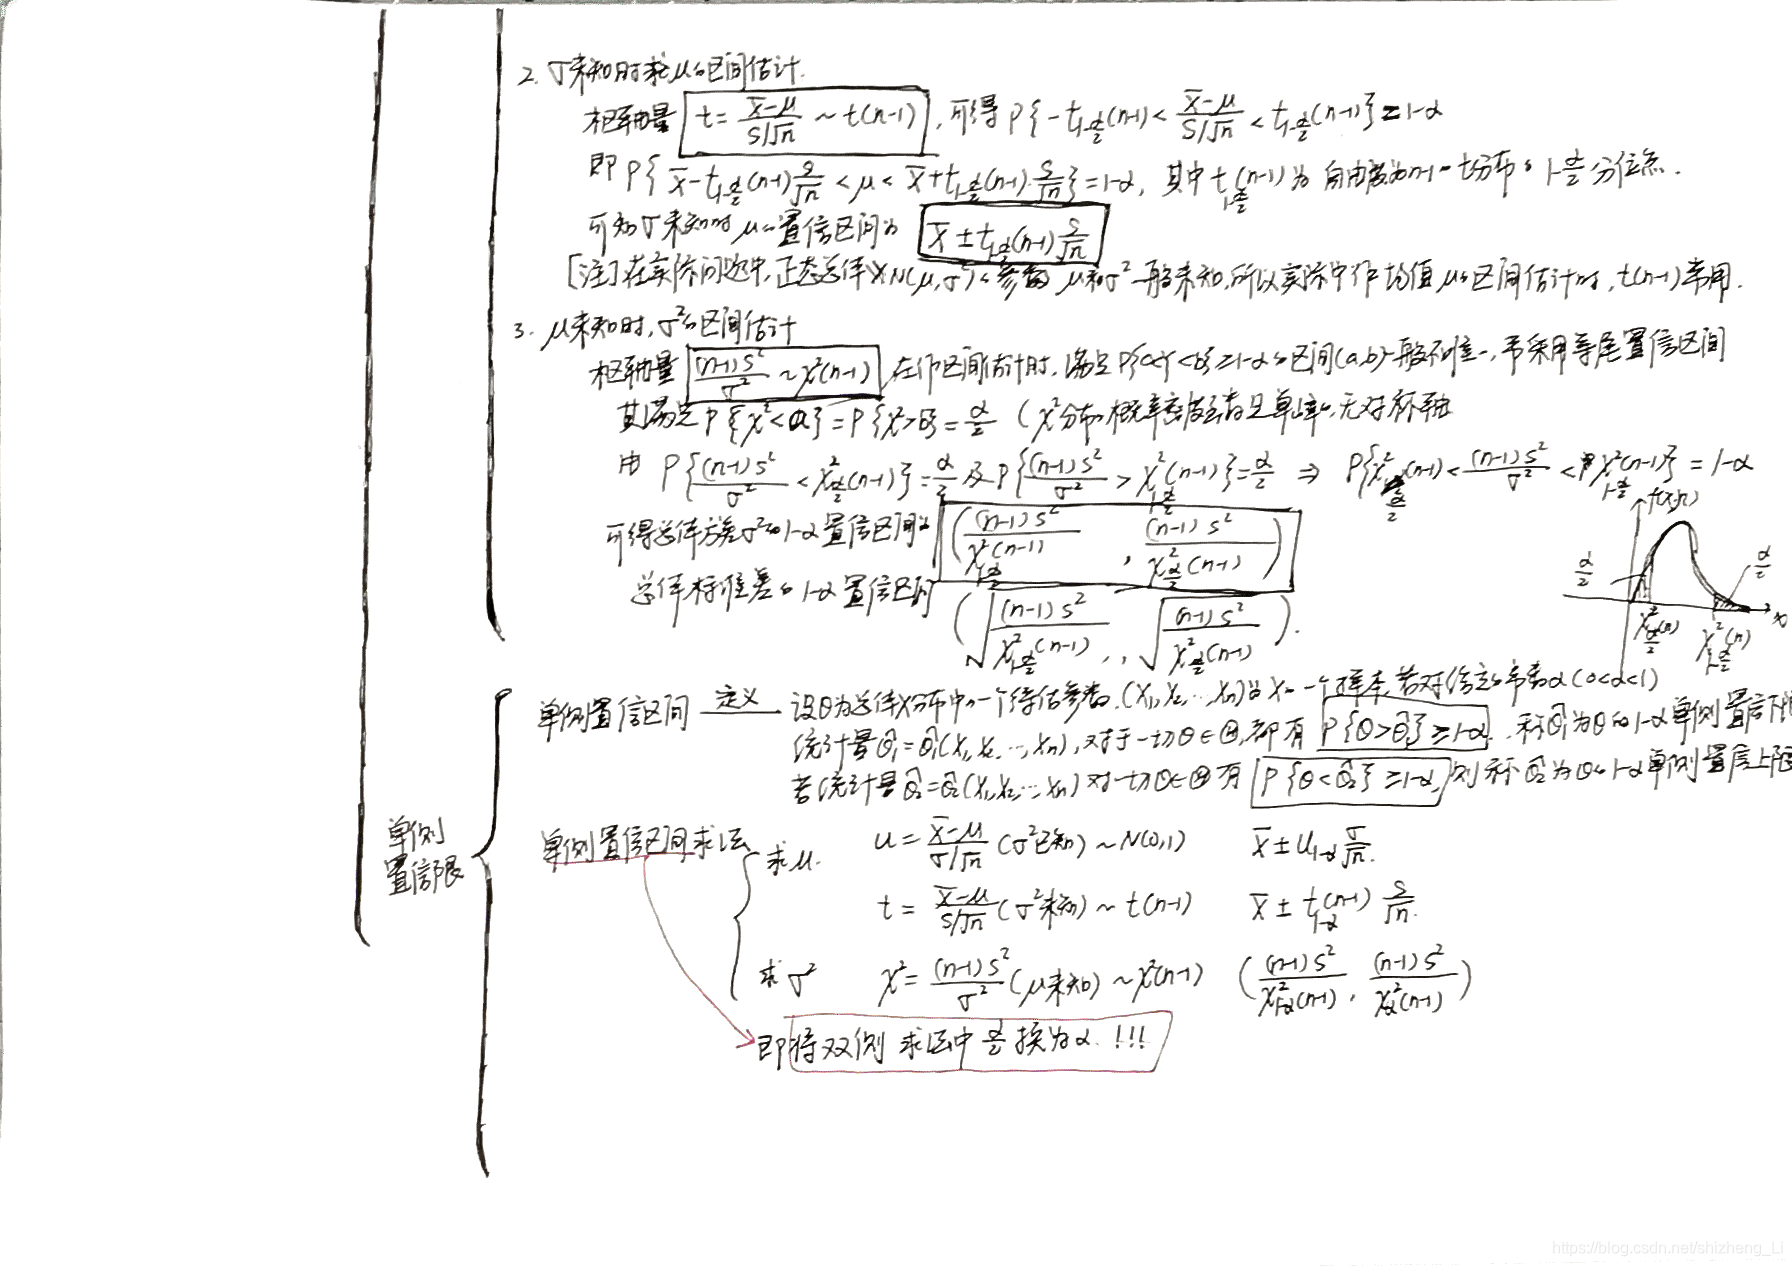 2. σ未知时求μ的区间估计.
枢轴量 t = (x̄-μ)/(S/√n) ~ t(n-1) , 可得 P{-t_{1-α/2}(n-1) < (x̄-μ)/(S/√n) < t_{1-α/2}(n-1)} = 1-α
即 P{ x̄ - t_{1-α/2}(n-1) S/√n < μ < x̄ + t_{1-α/2}(n-1) S/√n } = 1-α, 其中 t_{1-α/2}(n-1) 为 自由度为n-1的t分布的 1-α/2 分位点.
可知σ未知时 μ的置信区间为 x̄ ± t_{1-α/2}(n-1) S/√n
[注] 在实际问题中, 正态总体X~N(μ, σ²)的参数 μ和σ²一般未知, 所以实际中作均值μ的区间估计时, t(n-1)常用.
3. μ未知时, σ²的区间估计
枢轴量 (n-1)S²/σ² ~ χ²(n-1) 在作区间估计时, 满足 P{a<χ²<b} = 1-α 的区间(a,b)一般不唯一, 常采用等尾置信区间
其满足 P{χ²<a} = P{χ²>b} = α/2 (χ²分布的概率密度 只单峰, 无对称轴
由 P{(n-1)S²/σ² < χ²_{α/2}(n-1)} = α/2 及 P{(n-1)S²/σ² > χ²_{1-α/2}(n-1)} = α/2 ⇒ P{χ²_{α/2}(n-1) < (n-1)S²/σ² < χ²_{1-α/2}(n-1)} = 1-α
可得总体方差σ²的1-α置信区间为 ( (n-1)S²/χ²_{1-α/2}(n-1) , (n-1)S²/χ²_{α/2}(n-1) )
总体标准差的 1-α 置信区间 ( √((n-1)S²/χ²_{1-α/2}(n-1)) , √((n-1)S²/χ²_{α/2}(n-1)) ).
α/2
α/2
χ²_{α/2}(n)
χ²_{1-α/2}(n)
单侧置信限
单侧置信区间 定义 设θ为总体X分布中的一个待估参数. (X₁, X₂, ..., Xₙ)为X的一个样本, 若对给定的常数α(0<α<1)
统计量θ̂₁=θ̂₁(X₁, X₂, ..., Xₙ), 对于一切θ∈Θ, 都有 P{θ>θ̂₁} ≥ 1-α. 称θ̂₁为θ的1-α单侧置信下限
若统计量θ̂₂=θ̂₂(X₁, X₂, ..., Xₙ) 对一切θ∈Θ 有 P{θ<θ̂₂} ≥ 1-α, 则称 θ̂₂ 为θ的1-α单侧置信上限
单侧置信区间求法
求μ. u = (x̄-μ)/(σ/√n) (σ²已知) ~ N(0,1) x̄ ± u_{1-α} σ/√n.
t = (x̄-μ)/(S/√n) (σ²未知) ~ t(n-1) x̄ ± t_{1-α}(n-1) S/√n.
求σ² χ² = (n-1)S²/σ² (μ未知) ~ χ²(n-1) ( (n-1)S²/χ²_{1-α}(n-1) , (n-1)S²/χ²_α(n-1) )
即将双侧 求法中 α/2 换为α. !!!
https://blog.csdn.net/shizheng_Li